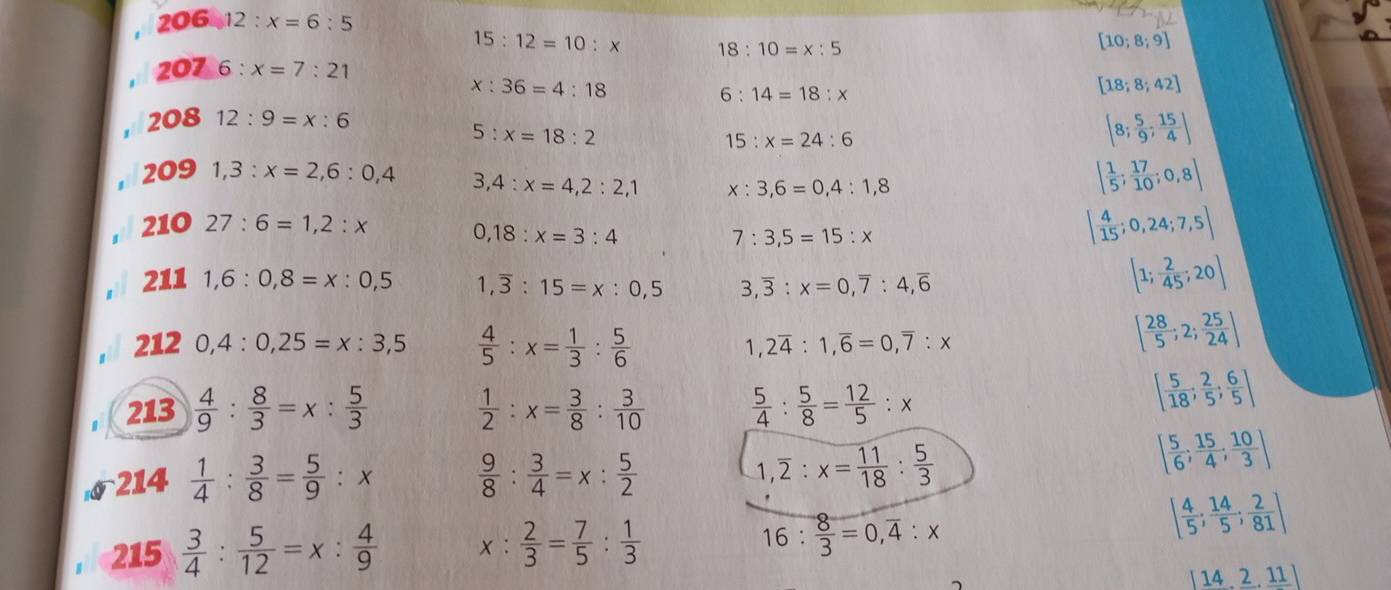 206 12 : x = 6 : 5 15 : 12 = 10 : x 18 : 10 = x : 5 [10; 8; 9]
207 6 : x = 7 : 21 x : 36 = 4 : 18 6 : 14 = 18 : x [18; 8; 42]
208 12 : 9 = x : 6 5 : x = 18 : 2 15 : x = 24 : 6 [8; 5/9; 15/4]
209 1,3 : x = 2,6 : 0,4 3,4 : x = 4,2 : 2,1 x : 3,6 = 0,4 : 1,8 [1/5; 17/10; 0,8]
210 27 : 6 = 1,2 : x 0,18 : x = 3 : 4 7 : 3,5 = 15 : x [4/15; 0,24; 7,5]
211 1,6 : 0,8 = x : 0,5 1,3̅ : 15 = x : 0,5 3,3̅ : x = 0,7̅ : 4,6̅ [1; 2/45; 20]
212 0,4 : 0,25 = x : 3,5 4/5 : x = 1/3 : 5/6 1,24̅ : 1,6̅ = 0,7̅ : x [28/5; 2; 25/24]
213 4/9 : 8/3 = x : 5/3 1/2 : x = 3/8 : 3/10 5/4 : 5/8 = 12/5 : x [5/18; 2/5; 6/5]
214 1/4 : 3/8 = 5/9 : x 9/8 : 3/4 = x : 5/2 1,2̅ : x = 11/18 : 5/3 [5/6; 15/4; 10/3]
215 3/4 : 5/12 = x : 4/9 x : 2/3 = 7/5 : 1/3 16 : 8/3 = 0,4̅ : x [4/5; 14/5; 2/81]